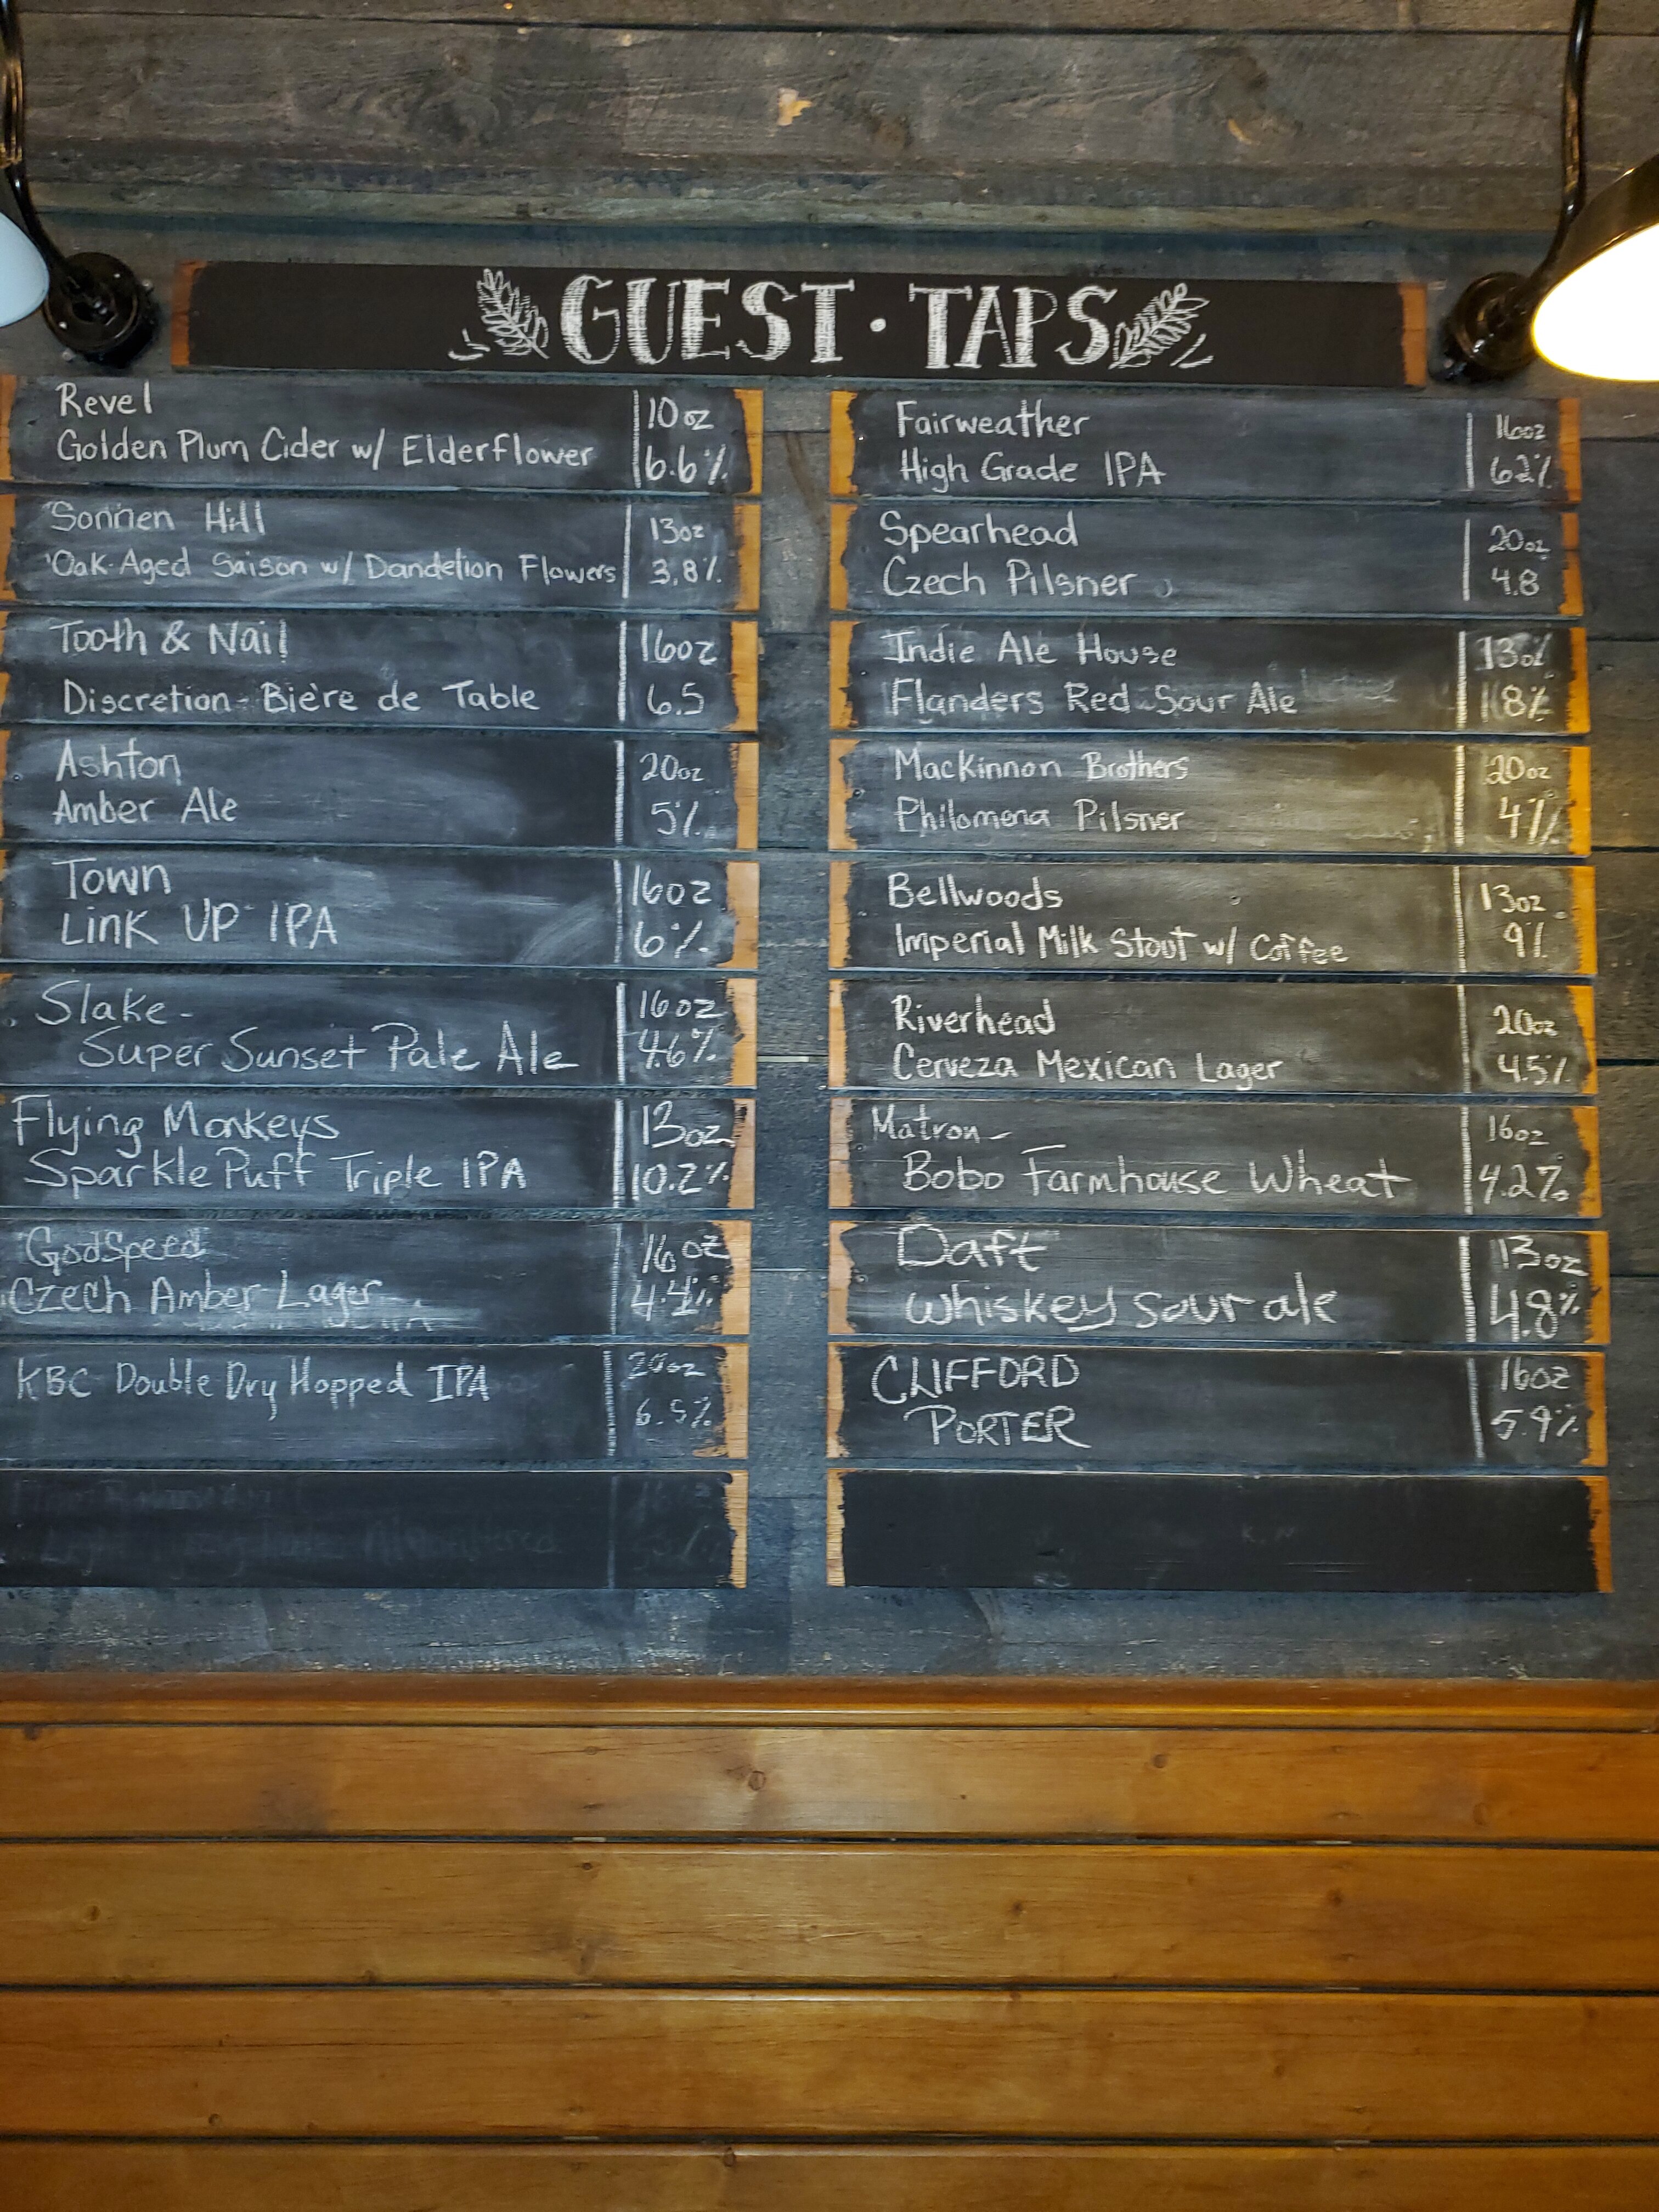 GUEST · TAPS
Revel
Golden Plum Cider w/ Elderflower
10oz
6.6%
Sonnen Hill
Oak-Aged Saison w/ Dandelion Flowers
13oz
3.8%
Tooth & Nail
Discretion - Bière de Table
16oz
6.5
Ashton
Amber Ale
20oz
5%
Town
Link UP IPA
16oz
6%
Slake -
Super Sunset Pale Ale
16oz
4.6%
Flying Monkeys
Sparkle Puff Triple IPA
13oz
10.2%
GodSpeed
Czech Amber Lager
16oz
4.4%
KBC Double Dry Hopped IPA
20oz
6.5%
Fairweather
High Grade IPA
16oz
6.2%
Spearhead
Czech Pilsner
20oz
4.8
Indie Ale House
Flanders Red Sour Ale
13oz
8%
Mackinnon Brothers
Philomena Pilsner
20oz
4%
Bellwoods
Imperial Milk Stout w/ Coffee
13oz
9%
Riverhead
Cerveza Mexican Lager
20oz
4.5%
Matron -
Bobo Farmhouse Wheat
16oz
4.2%
Daft
Whiskey sour ale
13oz
4.8%
CLIFFORD
PORTER
16oz
5.9%